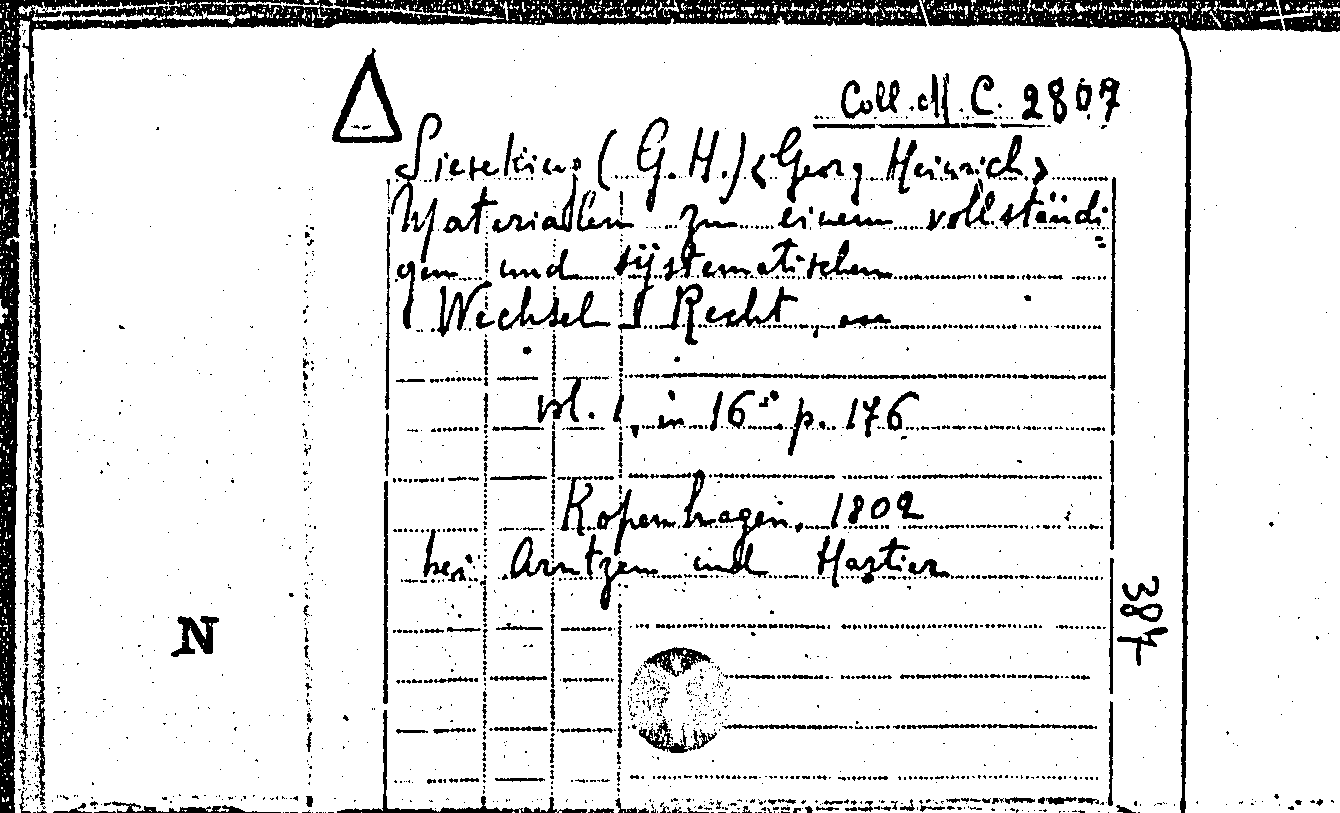 Coll. M. C. 2807
Sieveking (G. H.) <Georg Heinrich>
Materialien zu einem vollständi=
gen und sÿstematischen
Wechsel Recht,
vol. 1, in 16° p. 176
Kopenhagen, 1802
bei Arntzen und Hartier
387
N